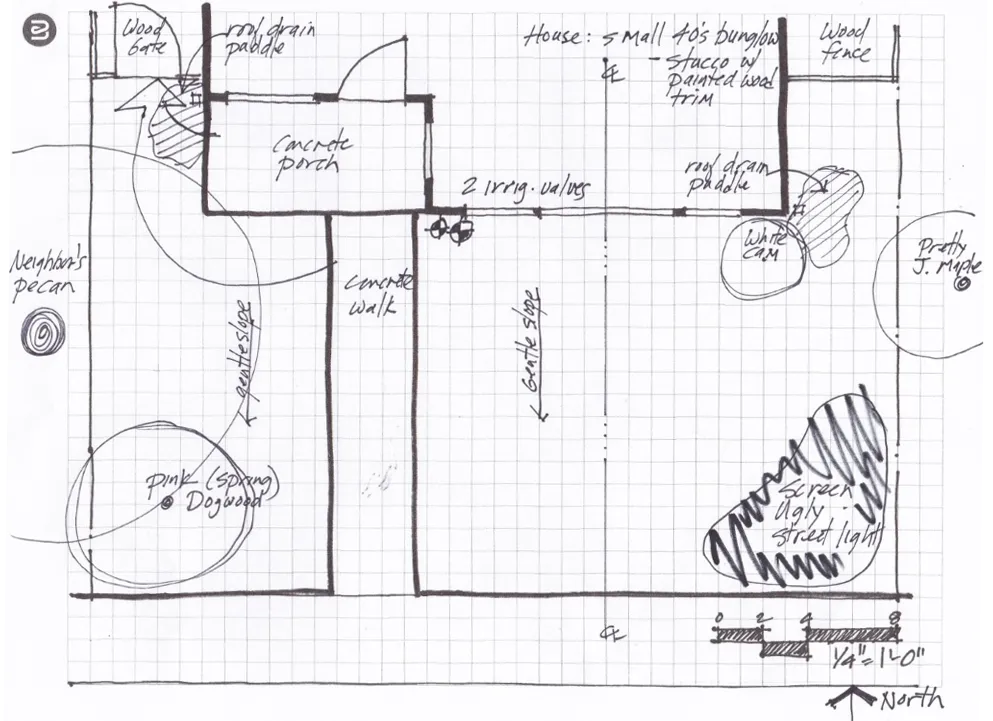 Wood
Gate
roof drain
paddle
House: small 40's bunglow
- stucco w/
painted wood
trim
Wood
fence
℄
Concrete
porch
2 irrig. valves
roof drain
paddle
White
Cam
Pretty
J. Maple
Neighbor's
pecan
Concrete
Walk
gentle slope
Gentle slope
Pink (Spring)
Dogwood
Screen
Ugly
street light
℄
0 2 4 8
1/4" = 1'-0"
North